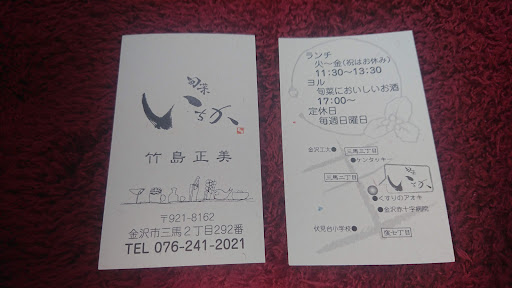 旬菜
いちか
竹島正美
〒921-8162
金沢市三馬2丁目292番
TEL 076-241-2021
ランチ
火〜金(祝はお休み)
11:30〜13:30
ヨル
旬菜においしいお酒
17:00〜
定休日
毎週日曜日
金沢工大
三馬三丁目
ケンタッキー
三馬二丁目
いちか
くすりのアオキ
金沢赤十字病院
伏見台小学校
窪七丁目